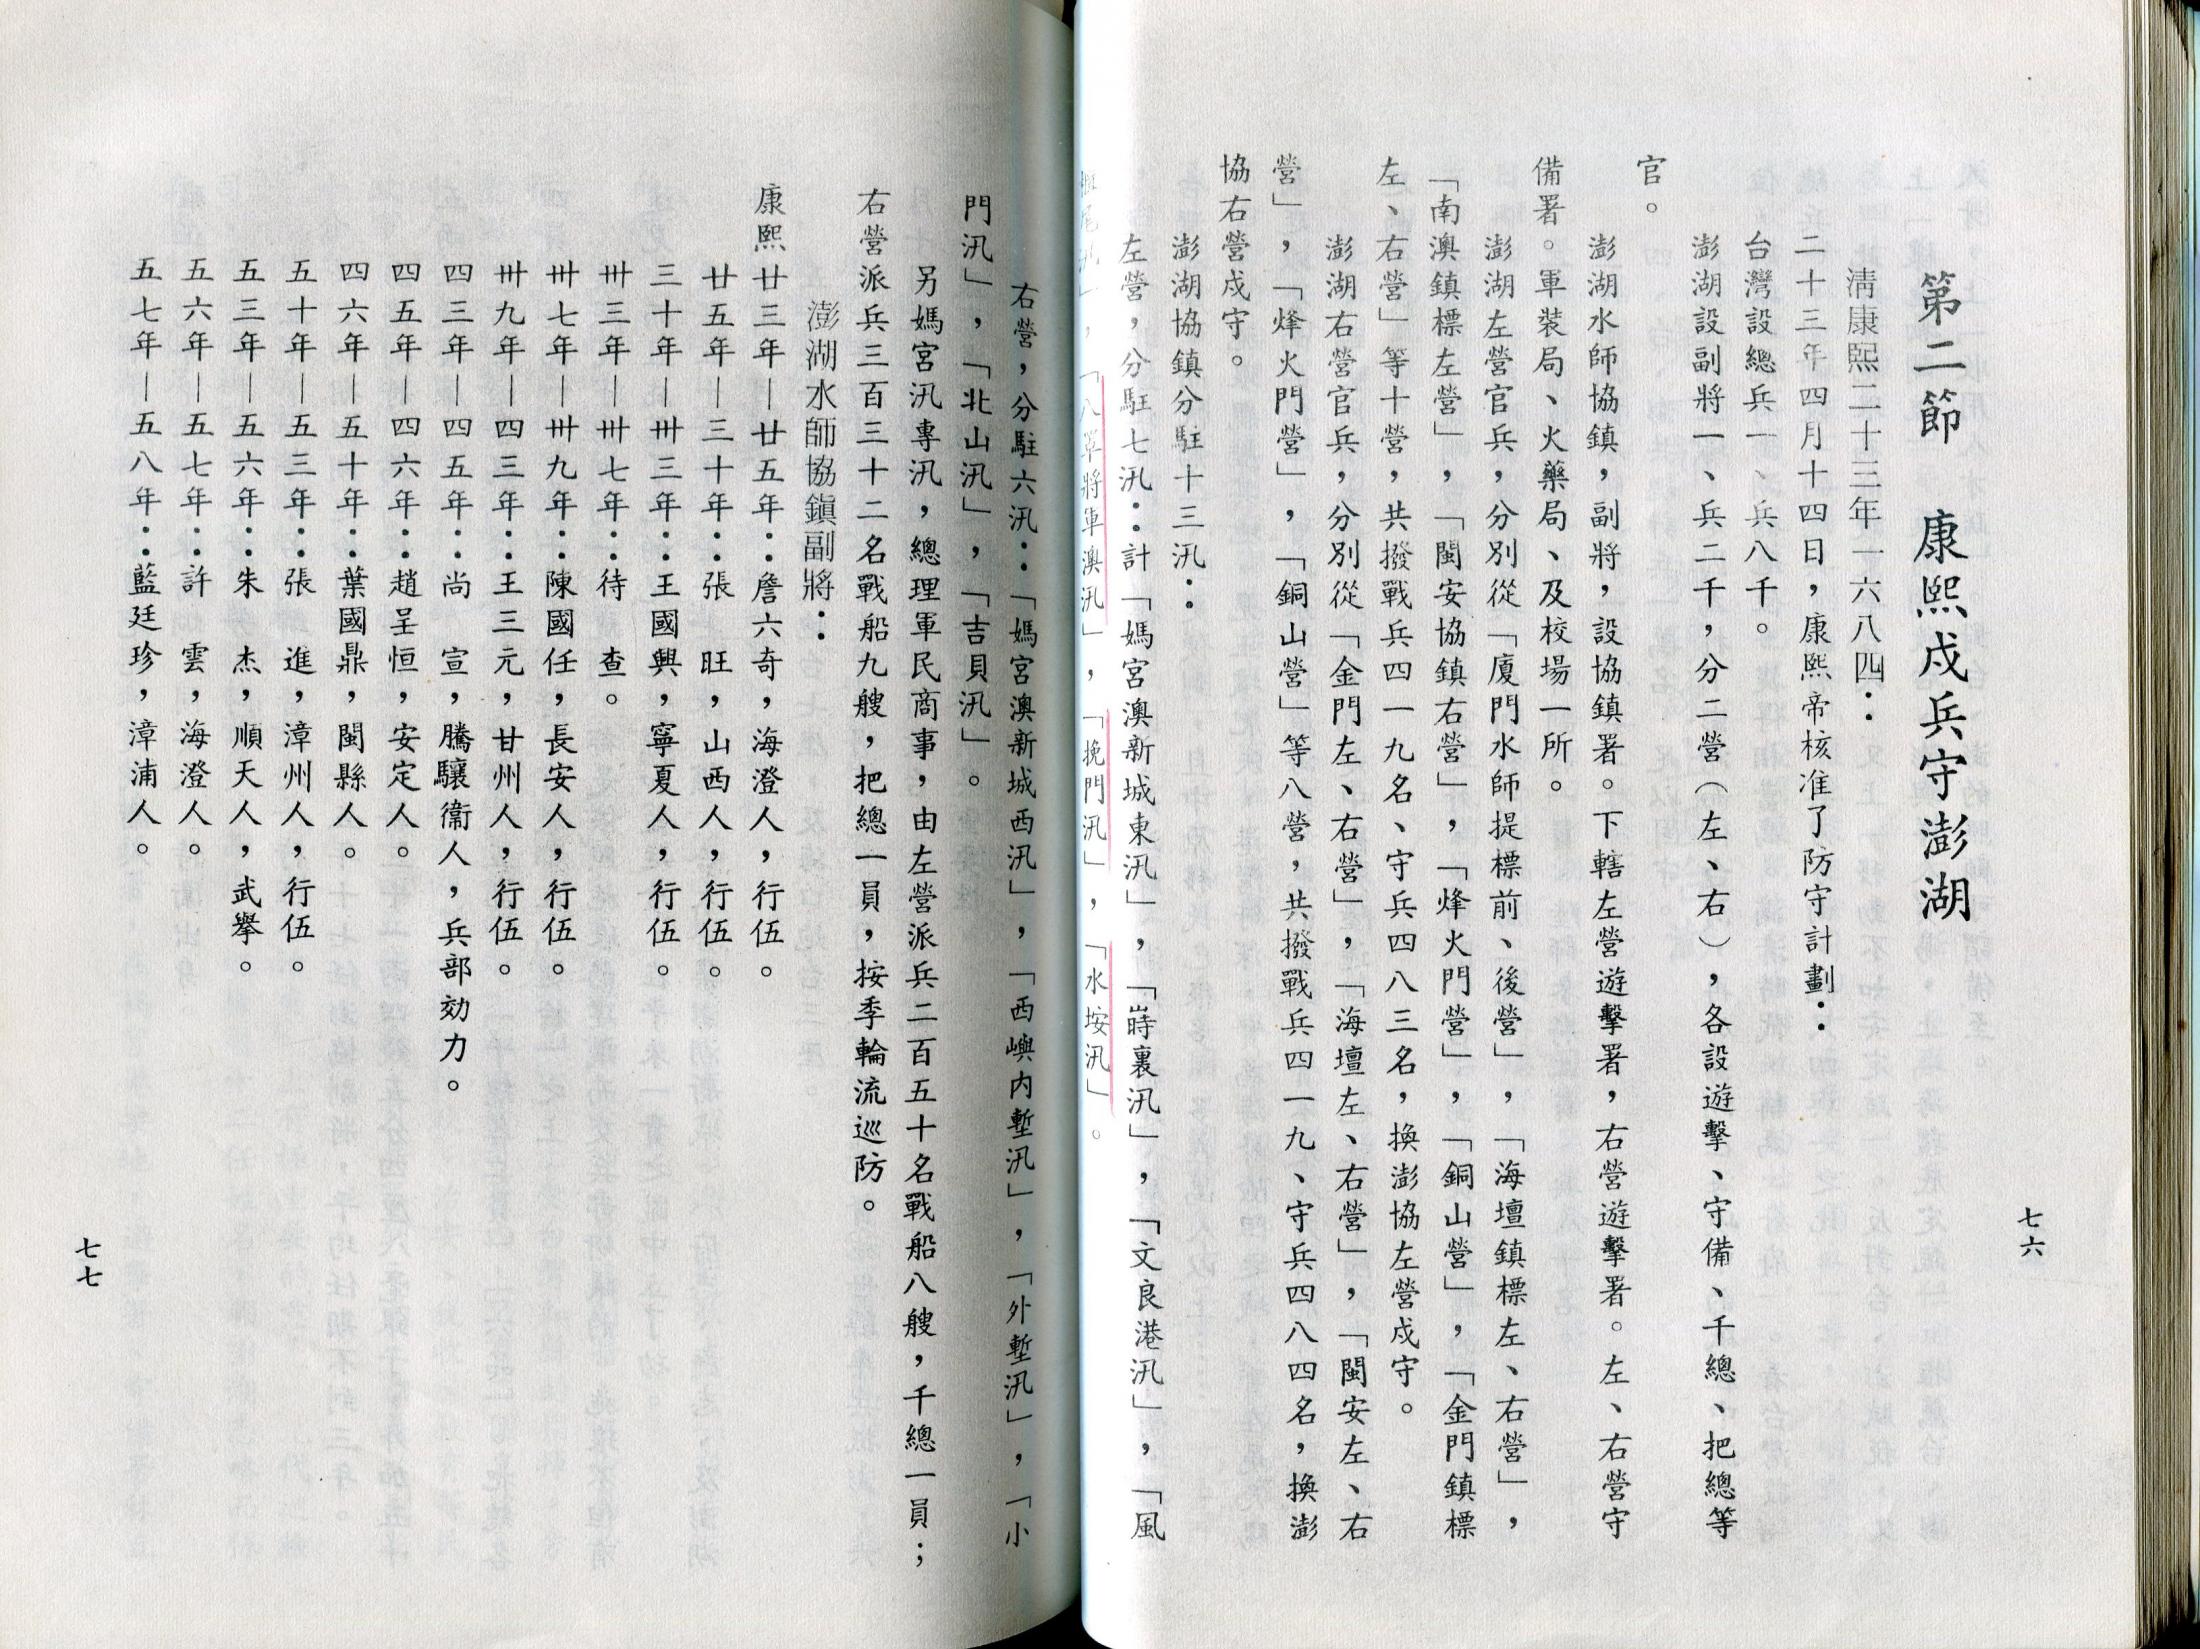 第二節　康熙戍兵守澎湖
清康熙二十三年一六八四：
二十三年四月十四日，康熙帝核准了防守計劃：
台灣設總兵一、兵八千。
澎湖設副將一、兵二千，分二營（左、右），各設遊擊、守備、千總、把總等
官。
澎湖水師協鎮，副將，設協鎮署。下轄左營遊擊署，右營遊擊署。左、右營守
備署。軍裝局、火藥局、及校場一所。
澎湖左營官兵，分別從「廈門水師提標前、後營」，「海壇鎮標左、右營」，
「南澳鎮標左營」，「閩安協鎮右營」，「烽火門營」，「銅山營」，「金門鎮標
左、右營」等十營，共撥戰兵四一九名、守兵四八三名，換澎協左營戍守。
澎湖右營官兵，分別從「金門左、右營」，「海壇左、右營」，「閩安左、右
營」，「烽火門營」，「銅山營」等八營，共撥戰兵四一九、守兵四八四名，換澎
協右營戍守。
澎湖協鎮分駐十三汛：
左營，分駐七汛：計「媽宮澳新城東汛」，「嵵裏汛」，「文良港汛」，「風
尾汛」，「八罩將軍澳汛」，「挽門汛」，「水垵汛」。
七六
右營，分駐六汛：「媽宮澳新城西汛」，「西嶼內塹汛」，「外塹汛」，「小
門汛」，「北山汛」，「吉貝汛」。
另媽宮汛專汛，總理軍民商事，由左營派兵二百五十名戰船八艘，千總一員；
右營派兵三百三十二名戰船九艘，把總一員，按季輪流巡防。
澎湖水師協鎮副將：
康熙廿三年—廿五年：詹六奇，海澄人，行伍。
廿五年—三十年：張　旺，山西人，行伍。
三十年—卅三年：王國興，寧夏人，行伍。
卅三年—卅七年：待　查。
卅七年—卅九年：陳國任，長安人，行伍。
卅九年—四三年：王三元，甘州人，行伍。
四三年—四五年：尚　宣，騰驤衛人，兵部効力。
四五年—四六年：趙呈恒，安定人。
四六年—五十年：葉國鼎，閩縣人。
五十年—五三年：張　進，漳州人，行伍。
五三年—五六年：朱　杰，順天人，武舉。
五六年—五七年：許　雲，海澄人。
五七年—五八年：藍廷珍，漳浦人。
七七